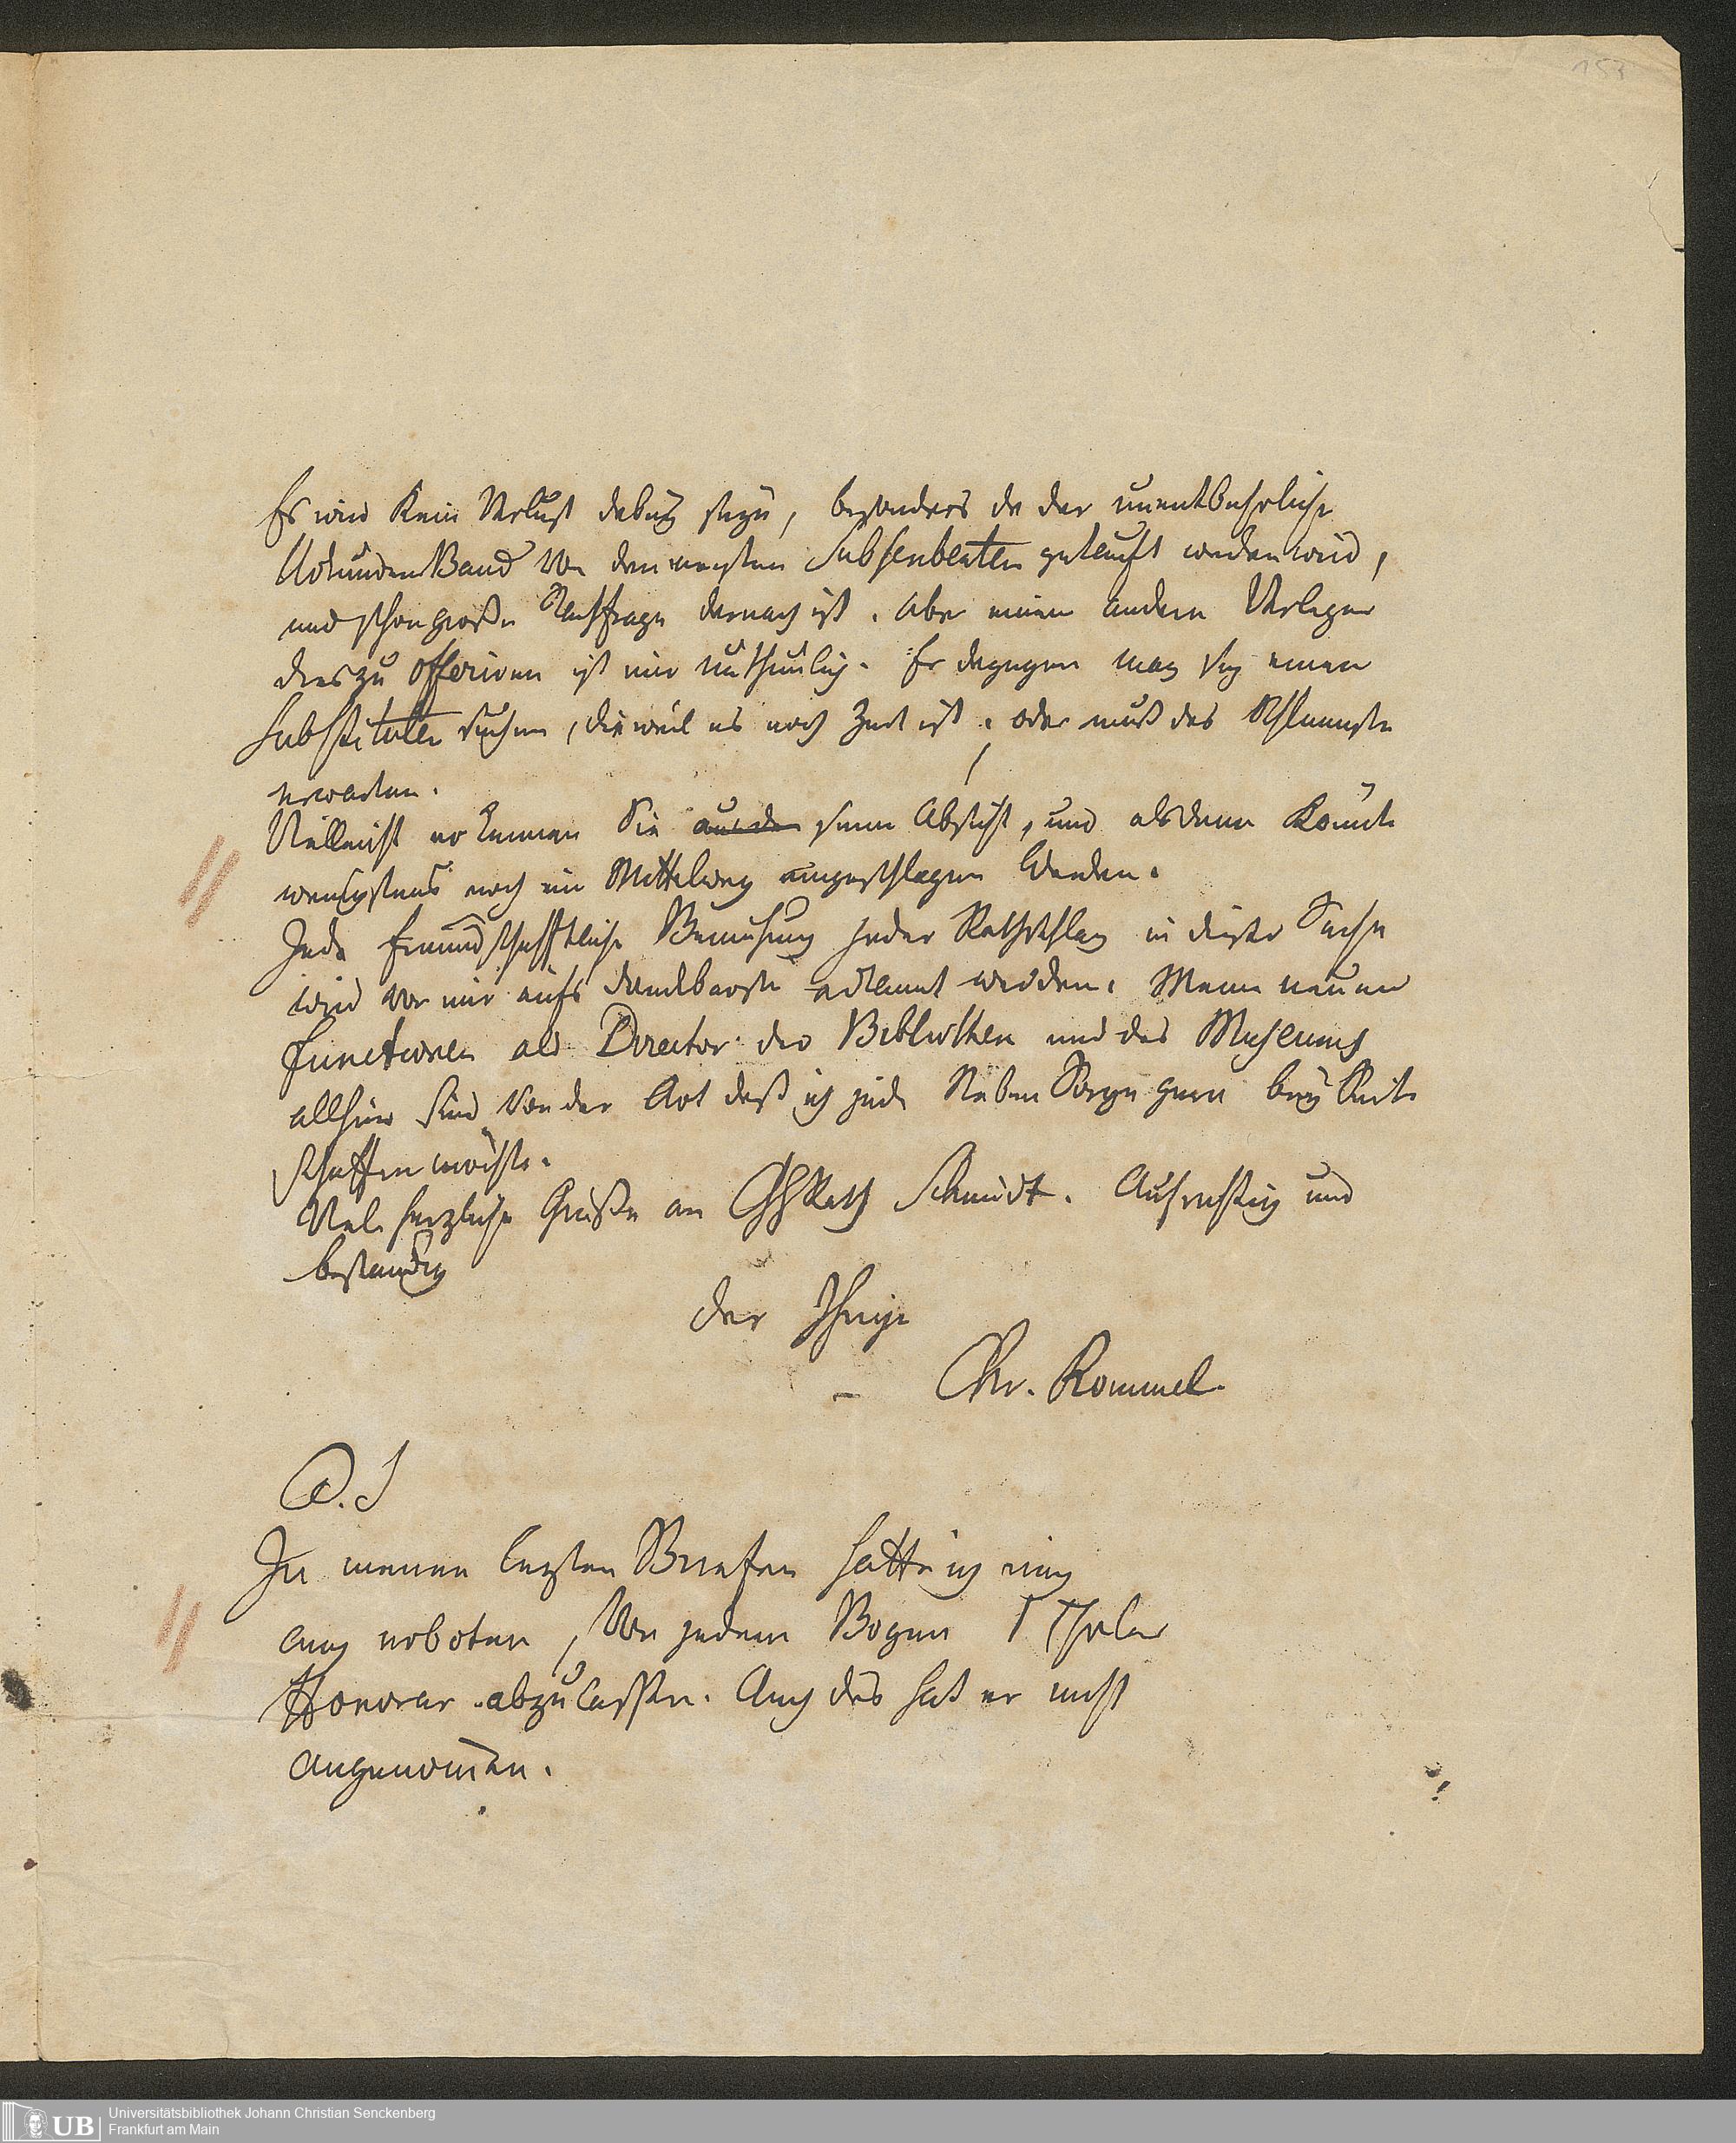 153
Es wird kein Verlust dabey seyn, besonders da der unentbehrliche
UrkundenBand von den meisten Subscribenten gekauft werden wird,
und schon große Nachfrage darnach ist. Aber einem andern Verleger
dies zu offeriren ist mir unthunlich. Er dagegen mag sich einen
Substituten suchen, dieweil es noch Zeit ist, oder muß das Schlimmste
erwarten.
Vielleicht erkennen Sie aus der seine Absicht, und alsdann könnte
wenigstens noch ein Mittelweg eingeschlagen werden.
Jede freundschafftliche Bemühung jeder Rathschlag in dieser Sache
wird von mir aufs dankbarste erkannt werden. Meine neuen
Functionen als Director der Bibliothek und des Museums
allhier sind von der Art daß ich jede NebenSorge gern bey Seite
schaffen möchte.
Viele herzliche Grüße an GHRath Schmidt. Aufrichtig und
beständig
der Ihrige
Chr. Rommel
P.S
In meinen lezten Briefen hatte ich mich
auch erboten, von jedem Bogen 1 Thaler
Honorar abzulassen. Auch dies hat er nicht
angenommen.
UB
Universitätsbibliothek Johann Christian Senckenberg
Frankfurt am Main